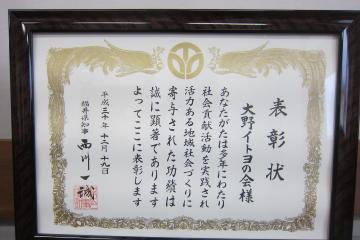 表彰状
大野イトヨの会様
あなたがたは多年にわたり
社会貢献活動を実践され
活力ある地域社会づくりに
寄与された功績は
誠に顕著であります
よってここに表彰します
平成三十年十二月十九日
福井県知事 西川一誠